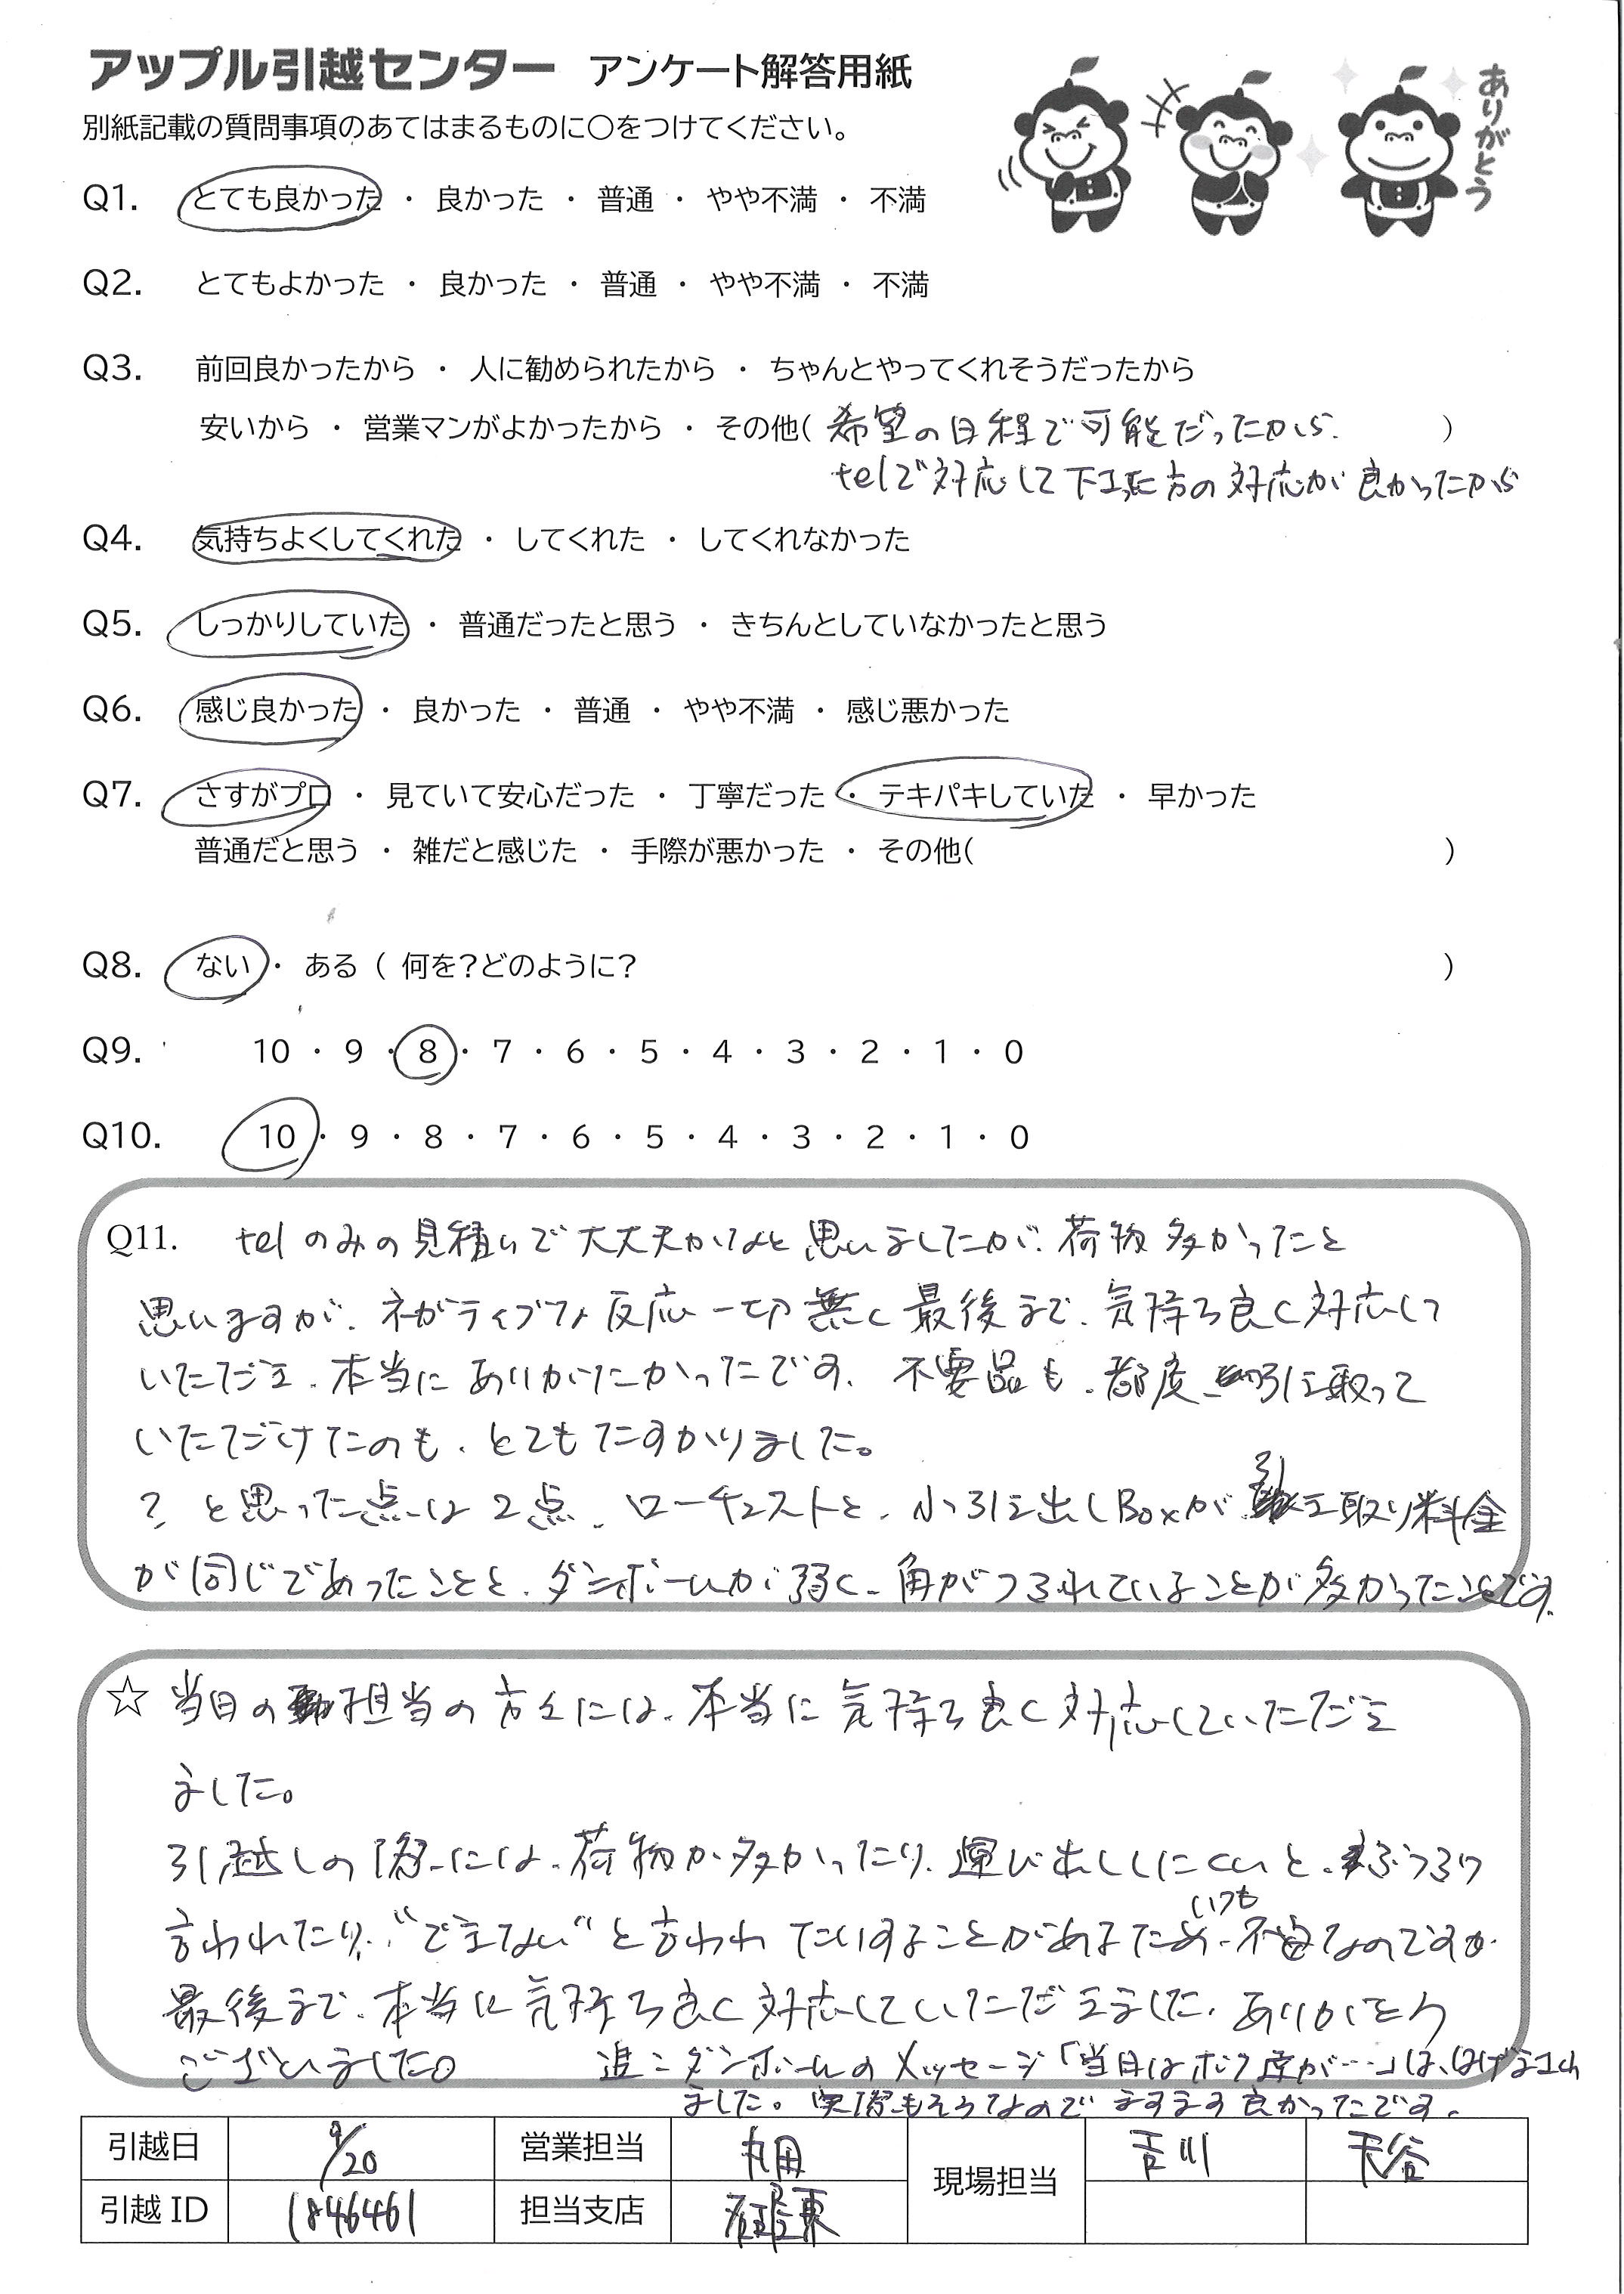 アップル引越センター アンケート解答用紙
別紙記載の質問事項のあてはまるものに○をつけてください。
ありがとう
Q1. とても良かった ・ 良かった ・ 普通 ・ やや不満 ・ 不満
Q2. とてもよかった ・ 良かった ・ 普通 ・ やや不満 ・ 不満
Q3. 前回良かったから ・ 人に勧められたから ・ ちゃんとやってくれそうだったから
安いから ・ 営業マンがよかったから ・ その他( 希望の日程で可能だったから. )
telで対応して下さった方の対応が良かったから
Q4. 気持ちよくしてくれた ・ してくれた ・ してくれなかった
Q5. しっかりしていた ・ 普通だったと思う ・ きちんとしていなかったと思う
Q6. 感じ良かった ・ 良かった ・ 普通 ・ やや不満 ・ 感じ悪かった
Q7. さすがプロ ・ 見ていて安心だった ・ 丁寧だった ・ テキパキしていた ・ 早かった
普通だと思う ・ 雑だと感じた ・ 手際が悪かった ・ その他( )
Q8. ない ・ ある ( 何を?どのように? )
Q9. 10 ・ 9 ・ 8 ・ 7 ・ 6 ・ 5 ・ 4 ・ 3 ・ 2 ・ 1 ・ 0
Q10. 10 ・ 9 ・ 8 ・ 7 ・ 6 ・ 5 ・ 4 ・ 3 ・ 2 ・ 1 ・ 0
Q11. telのみの見積りで大丈夫かなと思いましたが、荷物多かったこと
思いますが、ネガティブな反応一切無く最後まで、気持ち良く対応して
いただき、本当にありがたかったです、不要品も、都度引き取って
いただけたのも、とてもたすかりました。
? と思った点は2点、ローチェストと、小引き出しBoxが引き取り料金
が同じであったことと、ダンボールが弱く、角がつぶれていることが多かったことです.
☆ 当日の担当の方々には、本当に気持ち良く対応していただき
ました。
引越しの際には、荷物が多かったり、運び出ししにくいと、ぶつぶつ
言われたり、"できない"と言われたりすることがあるため、いつも不安なのですが
最後まで、本当に気持ち良く対応していただきました、ありがとう
ございました。 追：ダンボールのメッセージ「当日はボク達が…」は、はげまされ
ました。実際もそうなので ますます良かったです.
引越日 9/20 営業担当 現場担当 吉川 天谷
引越ID 1846461 担当支店